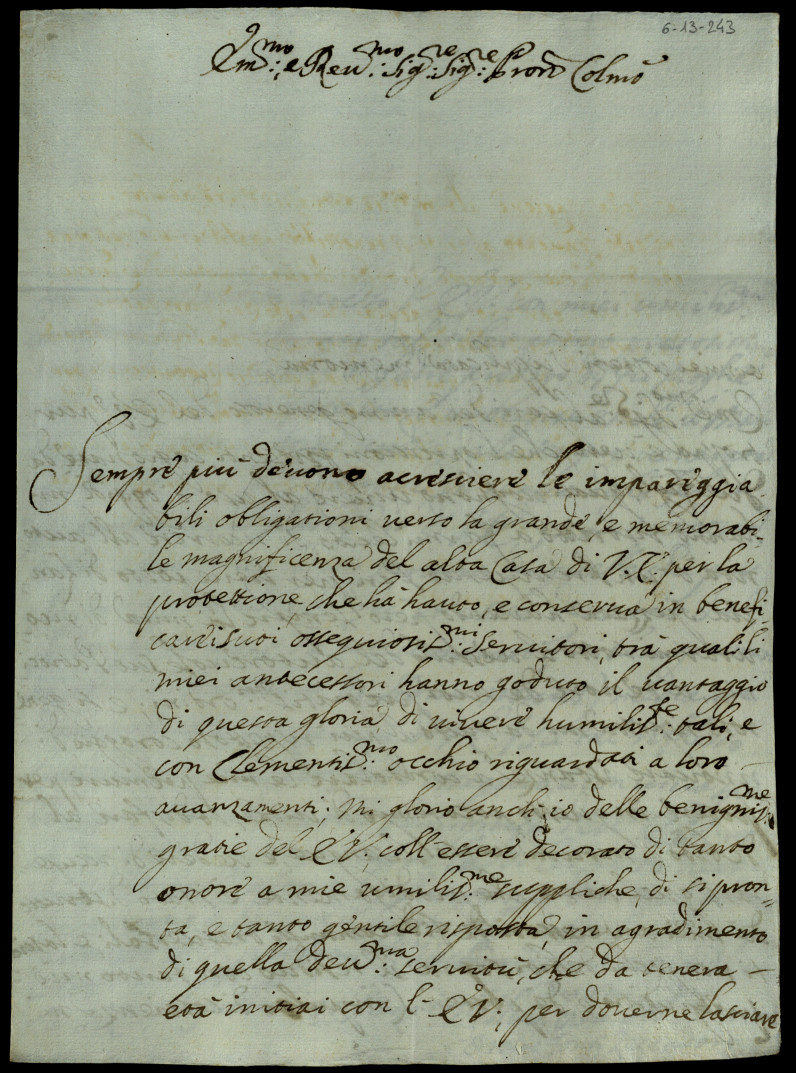 6-13-243
Em.mo: e Reu.mo: Sig.re: Sig.re: Pron Colmo
Sempre più deuono acresciere le impareggia
bili obligationi uerso la grande, e memorabi-
le magnificenza del alta Casa di V.E: per la
protettione, che hà hauto, e conserua in benefi-
care i suoi ossequiosis.mi: Seruitori, trà quali li
miei antecessori hanno goduto il uantaggio
di questa gloria, di uiuere humilis.te: tali, e
con Clementis.mo: occhio riguardati a loro
auanzamenti; Mi glorio anch'io delle benignis.me:
gratie del E.V; coll'essere decorato di tanto
onore a mie umilis.me: suppliche, di si pron-
ta, e tanto gentile risposta, in agradimento
di quella deu.ma: seruitù, che da tenera
età initiai con l'E.V;, per douerne lasciare